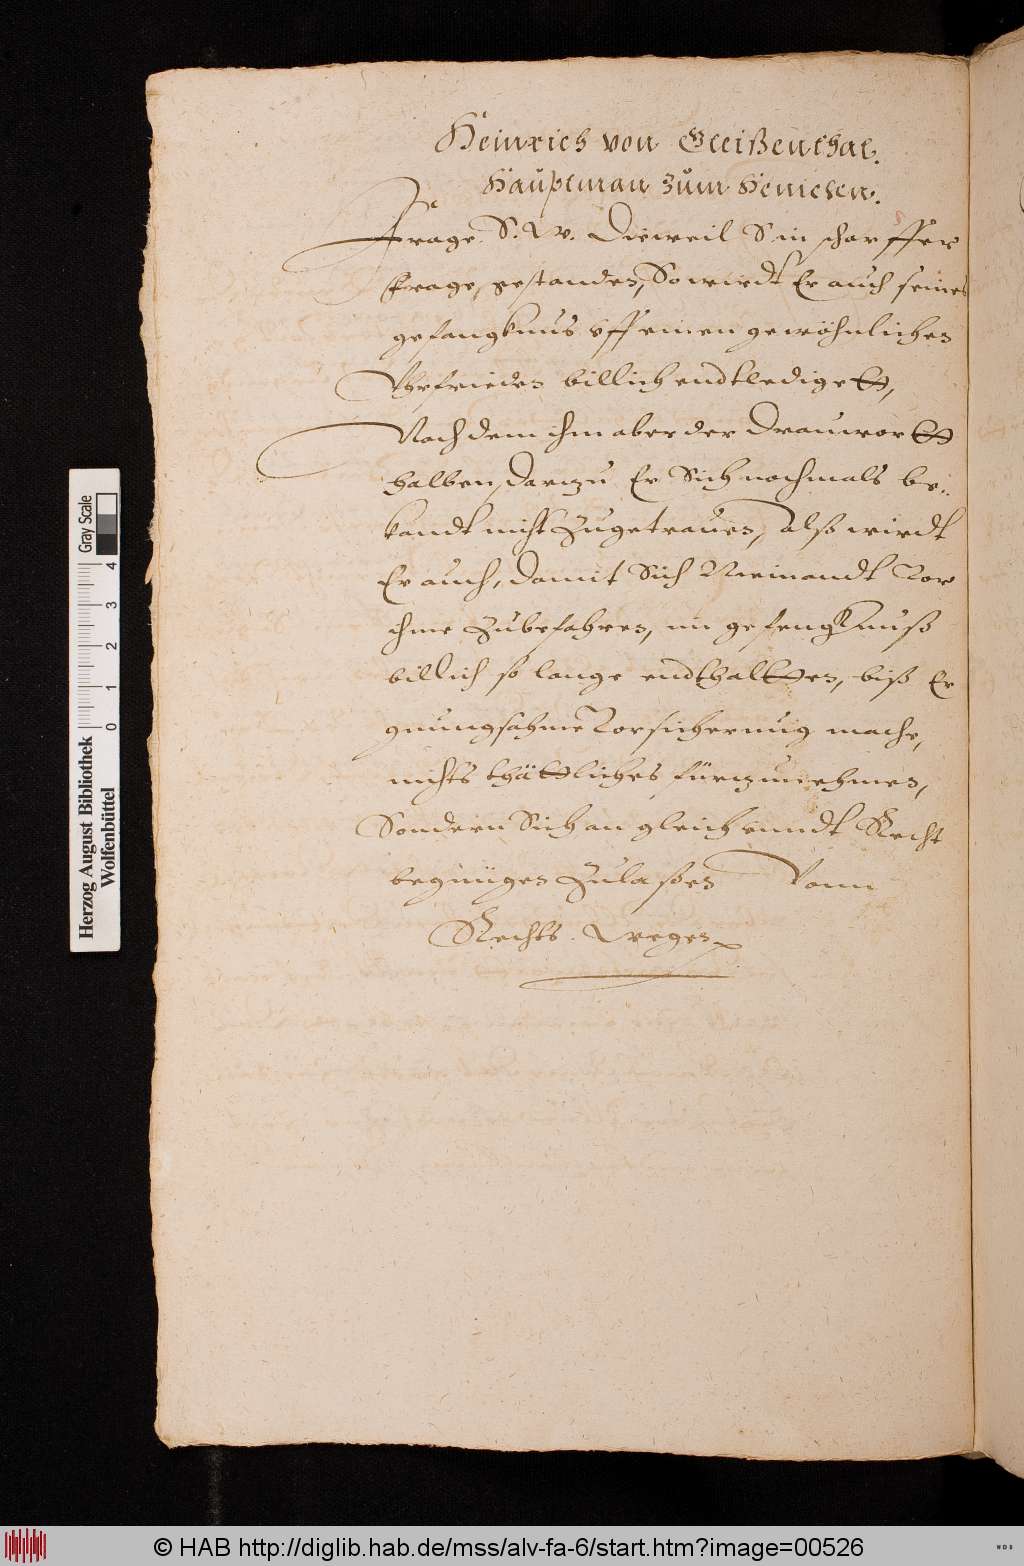 Heinrich von Gleißenthal.
Hauptman zum Hemichen.
Frage. S. W. Dieweil S. in scharffer
Frage, gestanden, So wirdt Er auch seines
gefangknus vff einen gewöhnlichen
Vhefrieden billich endtledigett,
Nach dem ihm aber der Drauwortt
halben, darzu Er Sich nochmals be-
kandt nicht Zugetrauen, Alß wirdt
Er auch, damit Sich Niemandt Vor
ihme Zubefahren, im gefengknuß
billich so lange endthaltten, biß Er
gnungsahme Vorsicherung mache,
nichts thättliches fürzunehmen,
Sondern Sich an gleich unndt Recht
begnügen Zulaßen Vonn
Rechts Wegen
Herzog August Bibliothek
Wolfenbüttel
0 1 2 3 4
Gray Scale
© HAB http://diglib.hab.de/mss/alv-fa-6/start.htm?image=00526
WDB